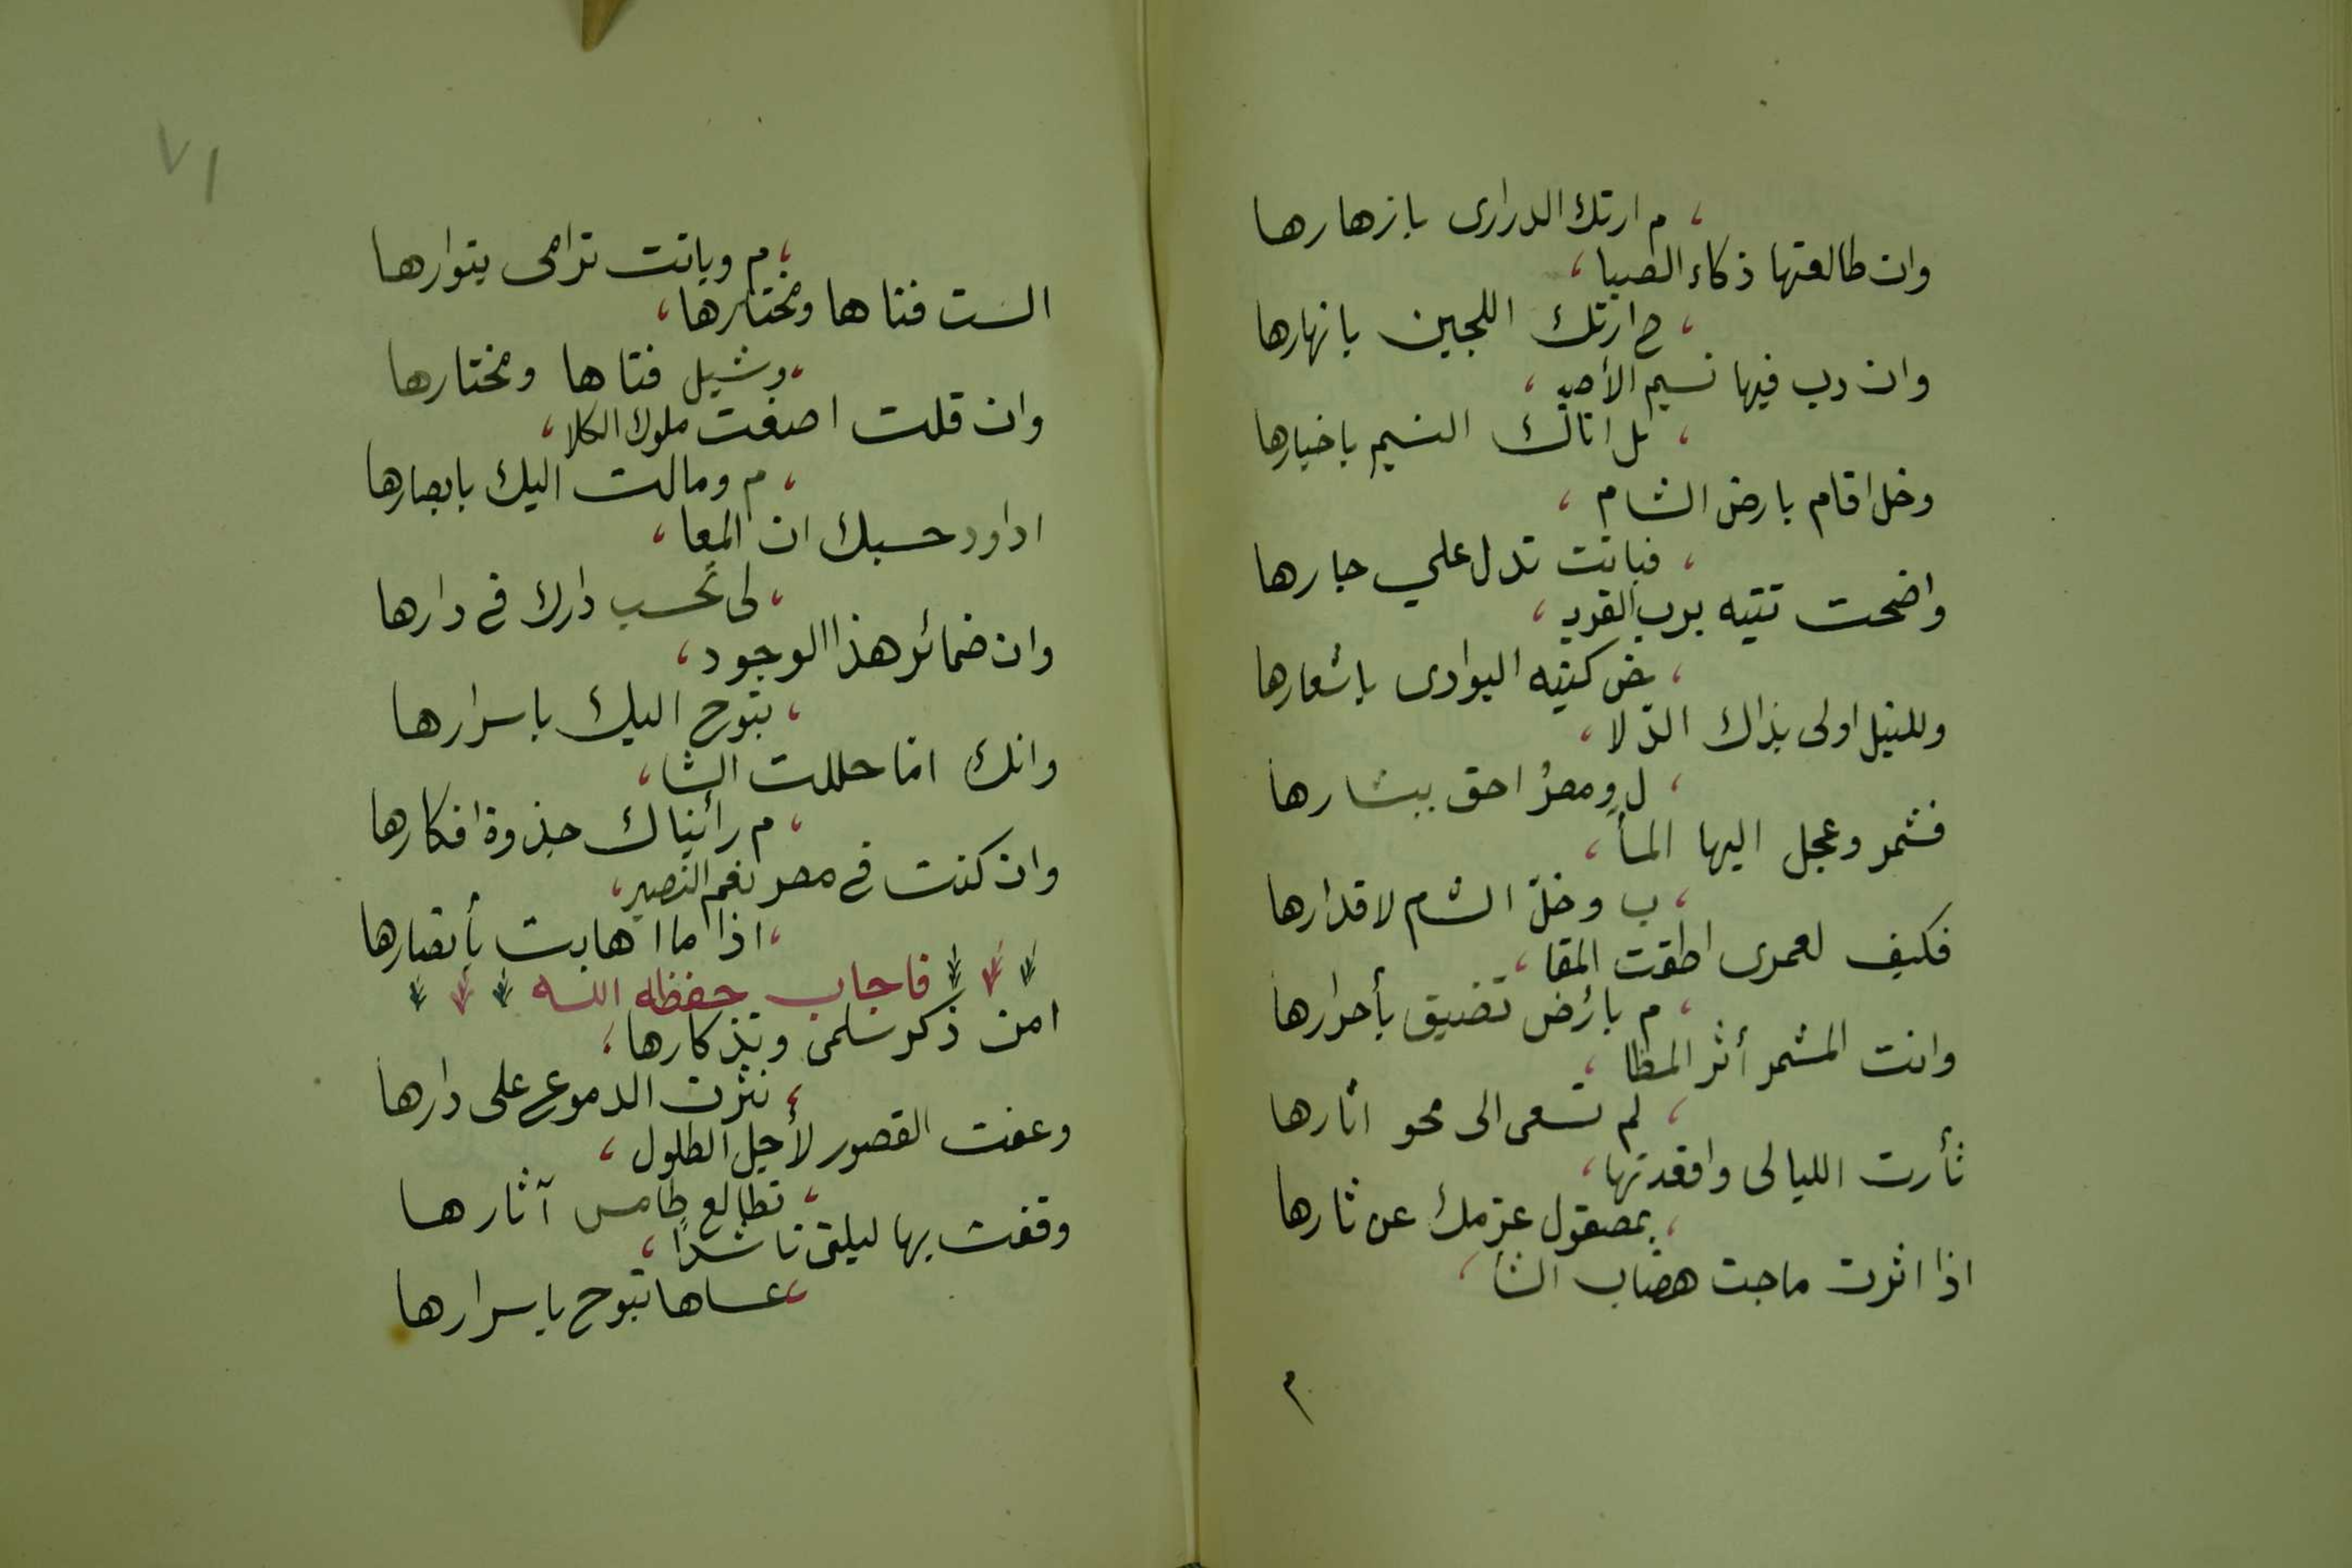 م ارتك الدرارى بازهارها
وان طالعتها ذكاء الصبا
ح ارتك اللجين بانهارها
وان دب فيها نسيم الأصيـ
ـل اتاك النسيم باخبارها
وخل اقام بارض الشام
فباتت تدل علي جارها
واضحت تتيه برب القريـ
ـض كتيه البوادى باشعارها
وللنيل اولى بذاك الدّلا
ل ومصرُ احق ببشارها
فشمر وعجل اليها المـأ
ب وخلّ الشام لاقدارها
فكيف لعمرى اطقت المقا
م بارض تضيق بأحرارها
وانت المشمر أثر المظا
لم تسعى الى محو اثارها
ثأرت الليالى واقعدتها
بمصقول عزمك عن ثارها
اذا اثرت ماجت هضاب الشآ
م
٧١
م وباتت ترامى بثوارها
الست فتاها ومختارها
وشبل فتاها ومختارها
وان قلت اصغت ملوك الكلا
م ومالت اليك بابصارها
اداود حسبك ان المعا
لى تحسب دارك فى دارها
وان ضمائر هذا الوجود
تبوح اليك باسرارها
وانك امّا حللت الشآ
م رأيناك جذوة افكارها
وان كنت فى مصر نعم النصير
اذا ما اهابت بأنصارها
فاجاب حفظه الله
امن ذكر سلمى وتذكارها
نثرت الدموع على دارها
وعفت القصور لأجل الطلول
تطالع طامس آثارها
وقفت بها ليلتى ناشداً
عساها تبوح باسرارها